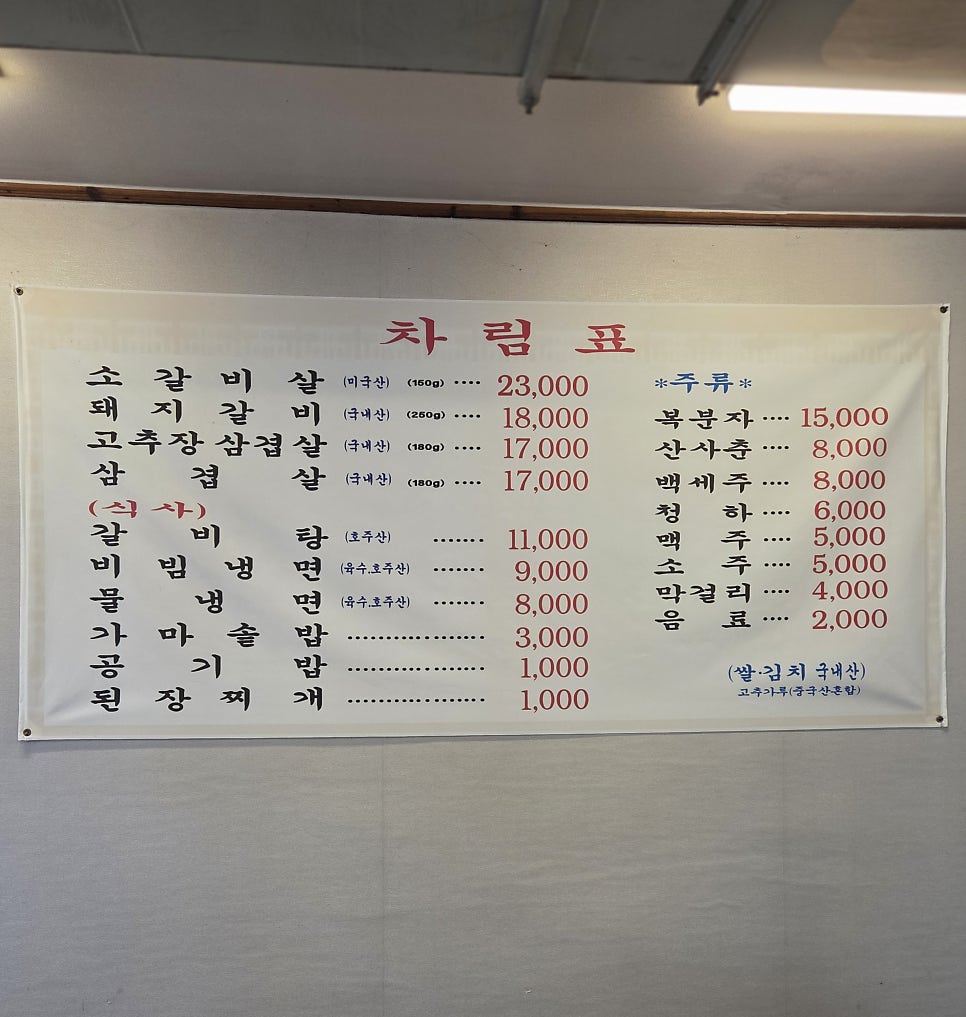 차림표
소갈비살 (미국산) (150g) ···· 23,000
돼지갈비 (국내산) (250g) ···· 18,000
고추장삼겹살 (국내산) (180g) ···· 17,000
삼겹살 (국내산) (180g) ···· 17,000
(식사)
갈비탕 (호주산) ······· 11,000
비빔냉면 (육수.호주산) ······· 9,000
물냉면 (육수.호주산) ······· 8,000
가마솥밥 ··················· 3,000
공기밥 ··················· 1,000
된장찌개 ··················· 1,000
*주류*
복분자 ···· 15,000
산사춘 ···· 8,000
백세주 ···· 8,000
청하 ···· 6,000
맥주 ···· 5,000
소주 ···· 5,000
막걸리 ···· 4,000
음료 ···· 2,000
(쌀·김치 국내산)
고추가루(중국산혼합)